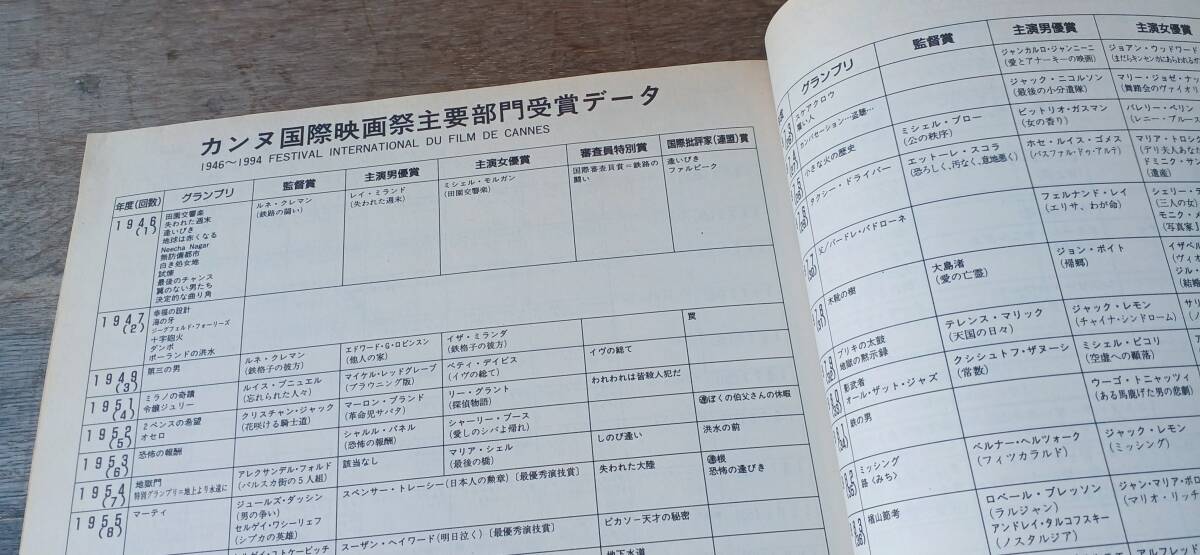 カンヌ国際映画祭主要部門受賞データ
1946〜1994 FESTIVAL INTERNATIONAL DU FILM DE CANNES
年度(回数)
グランプリ
監督賞
主演男優賞
主演女優賞
審査員特別賞
国際批評家(連盟)賞
1946
(1)
田園交響楽
失われた週末
逢いびき
地球は赤くなる
Neecha Nagar
無防備都市
白き処女地
試煉
最後のチャンス
翼のない男たち
決定的な曲り角
ルネ・クレマン
(鉄路の闘い)
レイ・ミランド
(失われた週末)
ミシェル・モルガン
(田園交響楽)
国際審査員賞=鉄路の
闘い
逢いびき
ファルビーク
1947
(2)
幸福の設計
海の牙
ジーグフェルド・フォーリーズ
十字砲火
ダンボ
ポーランドの洪水
1949
(3)
第三の男
ルネ・クレマン
(鉄格子の彼方)
エドワード・G・ロビンスン
(他人の家)
イザ・ミランダ
(鉄格子の彼方)
罠
1951
(4)
ミラノの奇蹟
令嬢ジュリー
ルイス・ブニュエル
(忘れられた人々)
マイケル・レッドグレーブ
(ブラウニング版)
ベティ・デイビス
(イヴの総て)
イヴの総て
1952
(5)
2ペンスの希望
オセロ
クリスチャン・ジャック
(花咲ける騎士道)
マーロン・ブランド
(革命児サパタ)
リー・グラント
(探偵物語)
われわれは皆殺人犯だ
1953
(6)
恐怖の報酬
シャルル・バネル
(恐怖の報酬)
シャーリー・ブース
(愛しのシバよ帰れ)
ぼくの伯父さんの休暇
1954
(7)
地獄門
特別グランプリ=地上より永遠に
アレクサンデル・フォルド
(バルスカ街の5人組)
該当なし
マリア・シェル
(最後の橋)
しのび逢い
洪水の前
1955
(8)
マーティ
ジュールズ・ダッシン
(男の争い)
セルゲイ・ワシーリェフ
(シプカの英雄)
スペンサー・トレーシー(日本人の勲章)〔最優秀演技賞〕
失われた大陸
根
恐怖の逢びき
スーザン・ヘイワード(明日泣く)〔最優秀演技賞〕
ピカソー天才の秘密
地下水道
グランプリ
監督賞
主演男優賞
主演女優賞
スケアクロウ
ジャンカルロ・ジャンニーニ
(愛とアナーキーの映画)
ジョアン・ウッドワード
カンバセーション…盗聴…
ジャック・ニコルソン
(最後の小分遣隊)
マリー・ジョゼ・ナッ
(舞踏会のヴァイオリ
小さな火の歴史
ミシェル・ブロー
(公の秩序)
ビットリオ・ガスマン
(女の香り)
バレリー・ペリン
(レニー・ブルース
タクシー・ドライバー
エットーレ・スコラ
(恐ろしく、汚なく、意地悪く)
ホセ・ルイス・ゴメス
(パスファル・ドゥ・アルテ)
マリア・トロン
(デリ夫人あなた
ドミニク・サン
(遺産)
父/パードレ・パドローネ
フェルナンド・レイ
(エリサ、わが命)
シェリー・デ
(三人の女)
モニク・
(写真家J
木靴の樹
大島渚
(愛の亡霊)
ジョン・ボイト
(帰郷)
イザベル
(ヴィオ
ジル・
(結婚
ブリキの太鼓
地獄の黙示録
テレンス・マリック
(天国の日々)
ジャック・レモン
(チャイナ・シンドローム)
サリ
影武者
オール・ザット・ジャズ
クシシュトフ・ザヌーシ
(常数)
ミシェル・ピコリ
(空虚への飛躍)
鉄の男
ウーゴ・トニャッツィ
(ある馬鹿げた男の悲劇)
ミッシング
路〈みち〉
ベルナー・ヘルツォーク
(フィツカラルド)
ジャック・レモン
(ミッシング)
楢山節考
ロベール・ブレッソン
(ラルジャン)
アンドレイ・タルコフスキー
(ノスタルジア)
ジャン・マリア・ボロ
(マリオ・リッチ